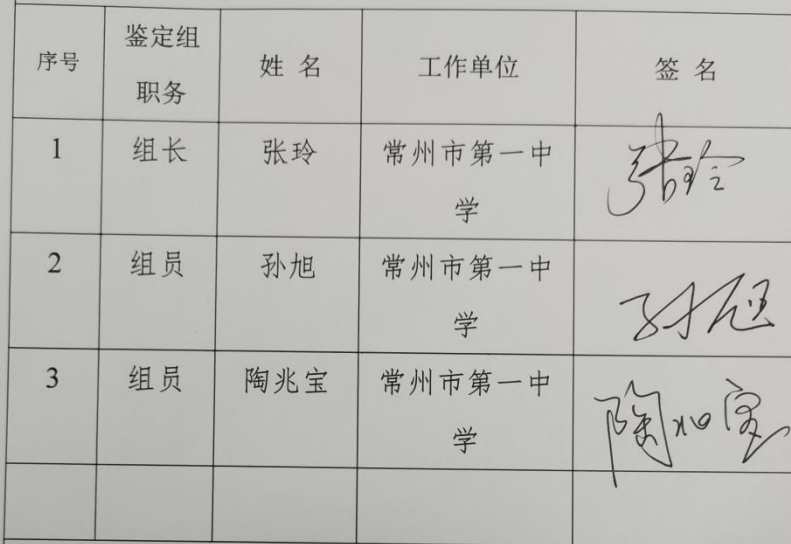 序号 鉴定组职务 姓名 工作单位 签名
1 组长 张玲 常州市第一中学 张玲
2 组员 孙旭 常州市第一中学 孙旭
3 组员 陶兆宝 常州市第一中学 陶兆宝